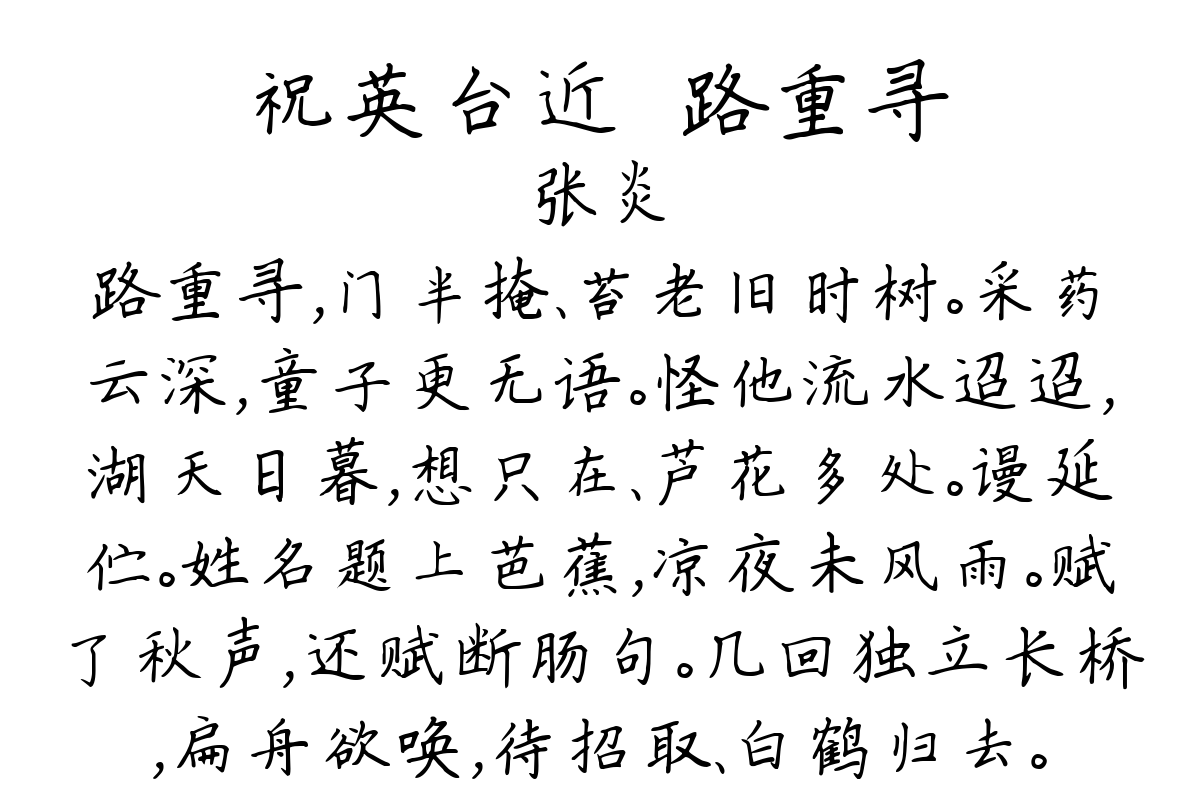 祝英台近 路重寻
张炎
路重寻,门半掩、苔老旧时树。采药
云深,童子更无语。怪他流水迢迢,
湖天日暮,想只在、芦花多处。谩延
伫。姓名题上芭蕉,凉夜未风雨。赋
了秋声,还赋断肠句。几回独立长桥
,扁舟欲唤,待招取、白鹤归去。